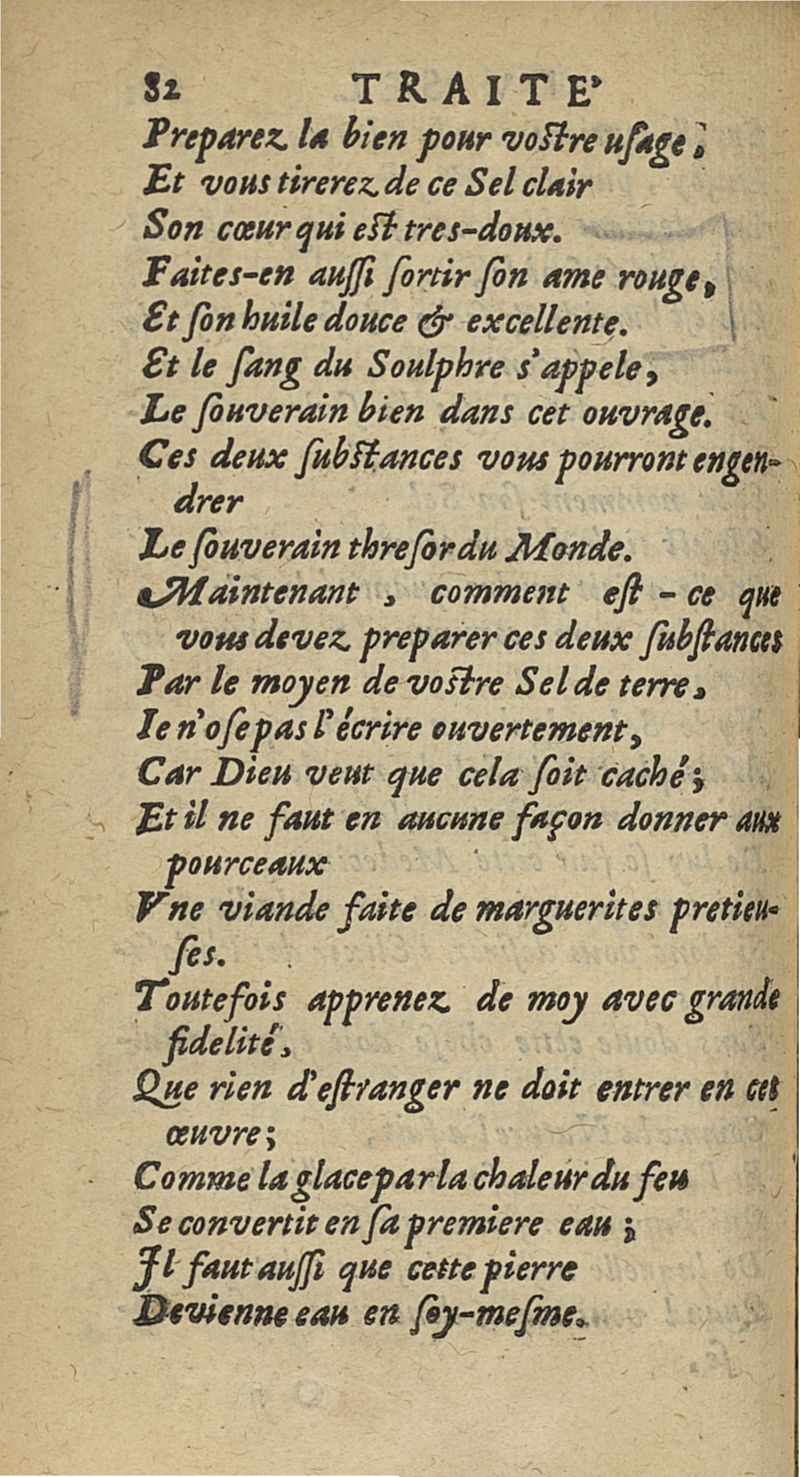 82 TRAITE'
Preparez la bien pour voſtre uſage,
Et vous tirerez de ce Sel clair
Son cœur qui eſt tres-doux.
Faites-en auſſi ſortir ſon ame rouge,
Et ſon huile douce & excellente.
Et le ſang du Soulphre s'appele,
Le ſouverain bien dans cet ouvrage.
Ces deux ſubſtances vous pourront engen-
drer
Le ſouverain threſor du Monde.
Maintenant, comment eſt-ce que
vous devez preparer ces deux ſubſtances
Par le moyen de voſtre Sel de terre,
Ie n'oſe pas l'écrire ouvertement,
Car Dieu veut que cela ſoit caché;
Et il ne faut en aucune façon donner aux
pourceaux
Vne viande faite de marguerites pretieu-
ſes.
Toutefois apprenez de moy avec grande
fidelité,
Que rien d'eſtranger ne doit entrer en cet
œuvre;
Comme la glace par la chaleur du feu
Se convertit en ſa premiere eau;
Il faut auſſi que cette pierre
Devienne eau en ſoy-meſme.